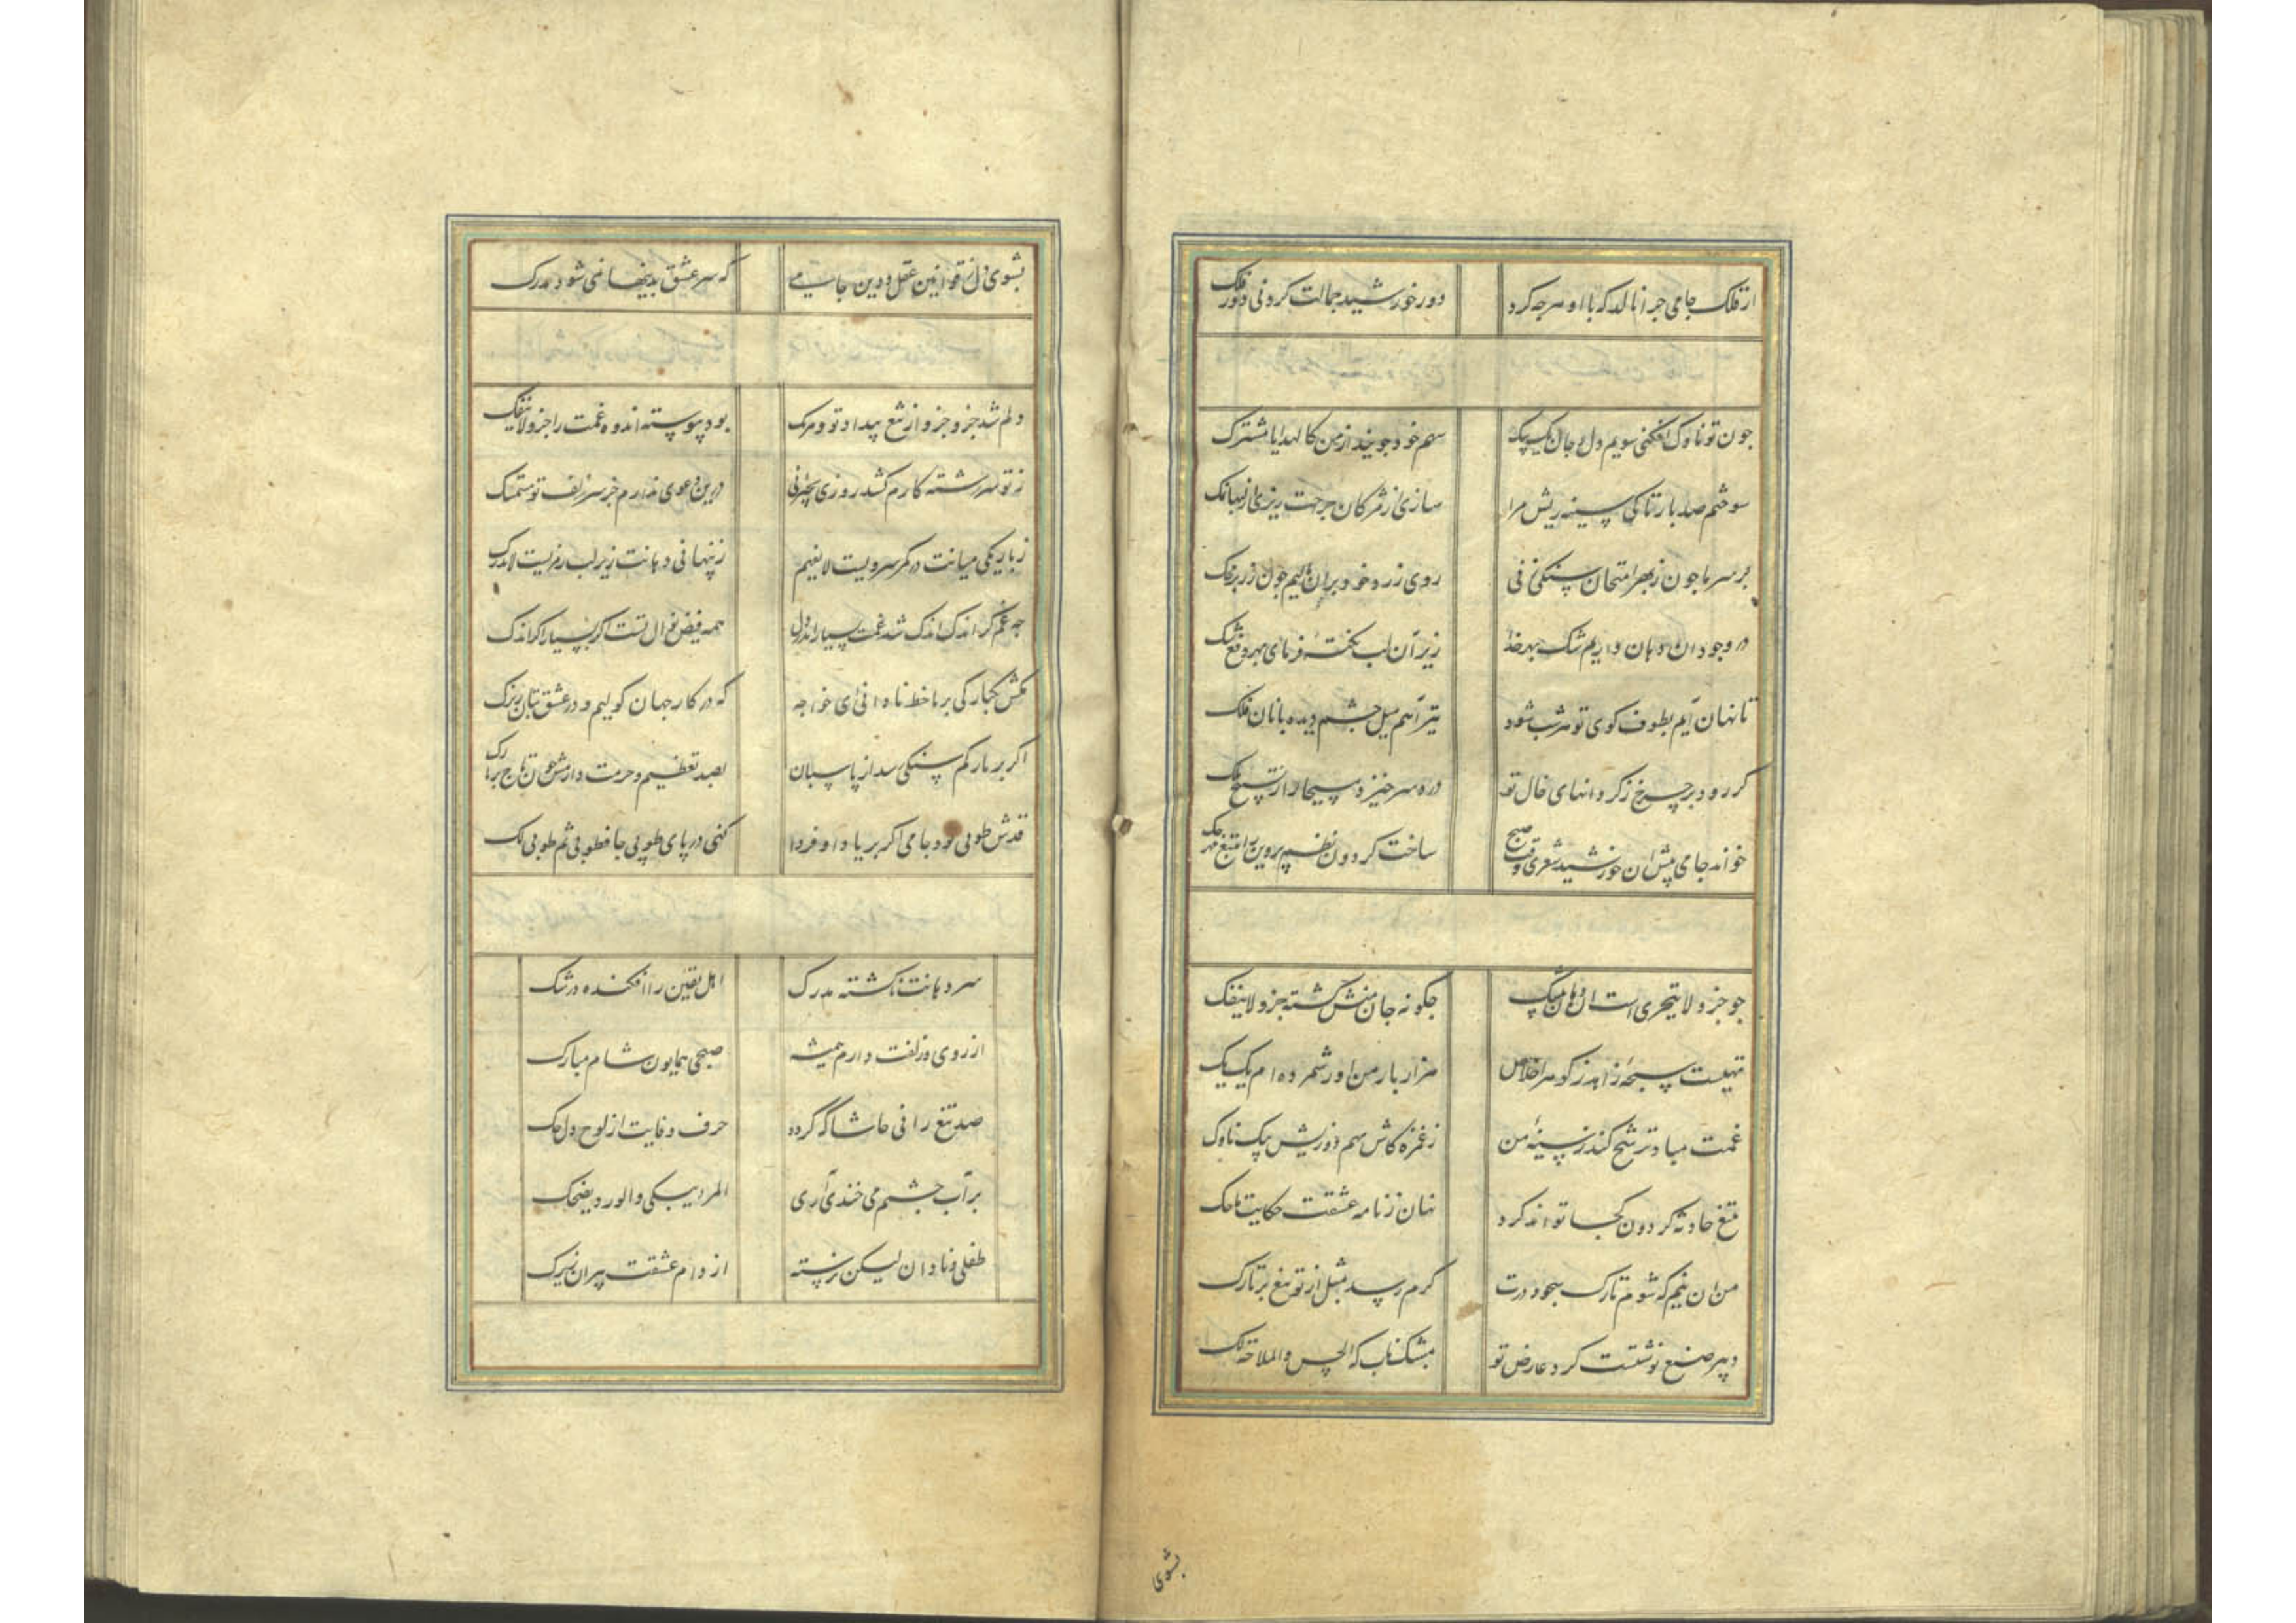 از فلک جامی چرا نالد که با او هر چه کرد دور خورشید جمالت کرد نی دور فلک
چون تو ناوک افکنی سویم دل و جان یک بیک سهم خود جویند از من کالهدایا مشترک
سوختم صد بار تا کی سینه ریش مرا سازی از مژگان جراحت ریزی از لبها نمک
بر سر ما چون ز بهر امتحان سنگی زنی روی زرد خود بران مالیم چون زر بر محک
در وجود ان دهان داریم شک بهر خدا زیر آن لب نکته فرمای بهر دفع شک
تا نهان آیم بطوف کوی تو هر شب شود تیر آهم میل چشم دیده بانان فلک
گر رود بر چرخ ذکر دانهای خال تو در ره سر خیزد مسیحا را ز تسبیح ملک
خواند جامی پیش ان خورشید شعری وقت صبح ساخت گردون نظم پروین را بتیغ مهر حک
چو جزو لا یتجزی است ان دهان بیشک چگونه جان منش گشته جزو لاینفک
تهیست سبحه زاهد ز گوهر اخلاص هزار بار من او را شمرده ام یک یک
غمت مباد ترشح کند ز سینه من ز غمزه کاش نهم دوزیش بیک ناوک
بتیغ حادثه گردون کجا تواند کرد نهان ز نامه عشقت حکایت ما حک
من ان نیم که شوم تارک سجود درت گرم رسد بمثل از تو تیغ بر تارک
دبیر صنع نوشتت گرد عارض تو بمشک ناب که الحسن والملاحة لک
بشوی
بشوی دل ز قوانین عقل و دین جامی که سر عشق بدینها نمی شود مدرک
دلم شد جزو جزو از تیغ بیداد تو و هر یک بود پیوسته اندوه غمت را جزو لاینفک
ز تو سر رشته کارم کشد روزی بچیزنی درین دعوی ندارم جز سر زلف تو مستمسک
ز باریکی میانت در کمر سریست لا یفهم ز پنهانی دهانت زیر لب رمزیست لایدرک
چه غم گر اندک اندک شد غمت بسیار اندر دل همه فیض نوال تست اگر بسیار اگر اندک
مکش یکبارگی بر ما خط نادانی ای خواجه که در کار جهان گولیم و در عشق بتان زیرک
اگر بر تارکم سنگی رسد از پاسبان تو بصد تعظیم و حرمت دارمش چون تاج بر تارک
قدش طوبی بود جامی اگر بر یاد او فردا کنی در پای طوبی جا فطوبی ثم طوبی لک
سر دهانت ناگشته مدرک اهل یقین را افکنده در شک
از روی و زلفت دارم همیشه صبحی همایون شام مبارک
صد تیغ رانی حاشا که گردد حرف وفایت از لوح دل حک
بر آب چشمم می خندی آری المزن یبکی والورد یضحک
طفلی و نادان لیکن نرسته از دام عشقت پیران زیرک